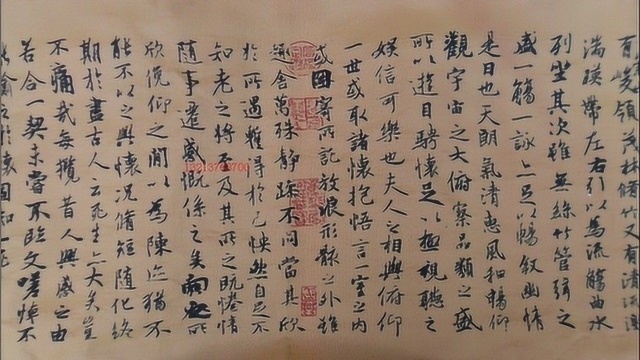 有峻領茂林脩竹又有清流
湍暎帶左右引以為流觴曲水
列坐其次雖無絲竹管弦之
盛一觴一詠亦足以暢敘幽情
是日也天朗氣清惠風和暢仰
觀宇宙之大俯察品類之盛
所以遊目騁懷足以極視聽之
娛信可樂也夫人之相與俯仰
一世或取諸懷抱悟言一室之內
或因寄所託放浪形骸之外雖
趣舍萬殊靜躁不同當其欣
於所遇暫得於己怏然自足不
知老之將至及其所之既惓情
隨事遷感慨係之矣向之所
欣俛仰之間以為陳迹猶不
能不以之興懷況脩短隨化終
期於盡古人云死生亦大矣豈
不痛哉每攬昔人興感之由
若合一契未嘗不臨文嗟悼不
能喻之於懷固知一死